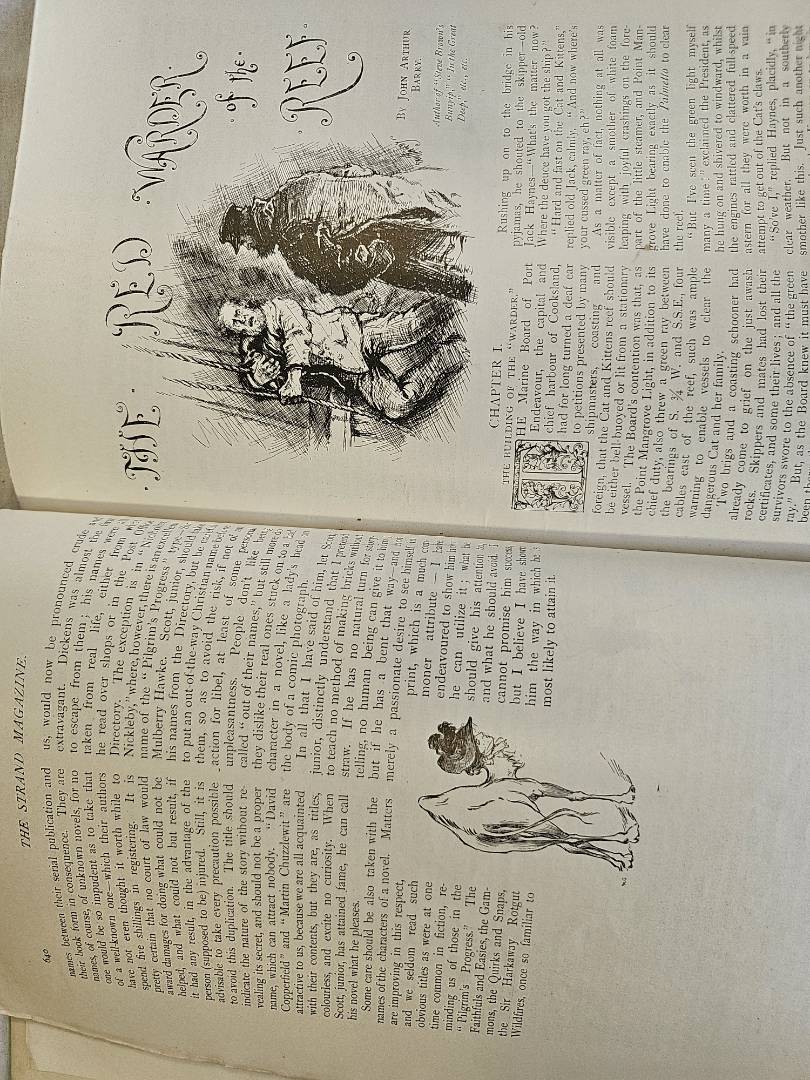 640
THE STRAND MAGAZINE.
names between their serial publication and
their book form in consequence. They are
names, of course, of unknown novels, for no
one would be so impudent as to take that
of a well-known one—which their authors
have not even thought it worth while to
spend five shillings in registering. It is
pretty certain that no court of law would
award damages for doing what could not be
helped, and what could not but result, if
it had any result, in the advantage of the
person (supposed to be) injured. Still, it is
advisable to take every precaution possible
to avoid this duplication. The title should
indicate the nature of the story without re-
vealing its secret, and should not be a proper
name, which can attract nobody. "David
Copperfield" and "Martin Chuzzlewit" are
attractive to us, because we are all acquainted
with their contents, but they are, as titles,
colourless, and excite no curiosity. When
Scott, junior, has attained fame, he can call
his novel what he pleases.
Some care should be also taken with the
names of the characters of a novel. Matters
are improving in this respect,
and we seldom read such
obvious titles as were at one
time common in fiction, re-
minding us of those in the
"Pilgrim's Progress." The
Faithfuls and Easies, the Gam-
mons, the Quirks and Snaps,
the Sir Harkaway Rotgut
Wildfires, once so familiar to
us, would now be pronounced crude
extravagant. Dickens was almost the
to escape from them; his names were
taken from real life, either from
he read over shops or in the Post Office
Directory. The exception is in "Nicholas
Nickleby," where, however, there is an excellent
name of the "Pilgrim's Progress" type—
Mulberry Hawke. Scott, junior, should
his names from the Directory, but be careful
to put an out-of-the-way Christian name before
them, so as to avoid the risk, if not of an
action for libel, at least of some personal
unpleasantness. People don't like being
called "out of their names," but still more
they dislike their real ones stuck on to a
character in a novel, like a lady's head on
the body of a comic photograph.
In all that I have said of him, let Scott,
junior, distinctly understand that I profess
to teach no method of making bricks without
straw. If he has no natural turn for story-
telling, no human being can give it to him;
but if he has a bent that way—and not
merely a passionate desire to see himself in
print, which is a much com-
moner attribute—I have
endeavoured to show him how
he can utilize it; what he
should give his attention to,
and what he should avoid. I
cannot promise him success
but I believe I have shown
him the way in which he is
most likely to attain it.
THE RED WARDER
of the
REEF.
By John Arthur
Barry.
Author of "Steve Brown's
Bunyip," "In the Great
Deep," etc., etc.
CHAPTER I.
THE BUILDING OF THE "WARDER."
THE Marine Board of Port
Endeavour, the capital and
chief harbour of Cooksland,
had for long turned a deaf ear
to petitions presented by many
shipmasters, coasting and
foreign, that the Cat and Kittens reef should
be either bell-buoyed or lit from a stationary
vessel. The Board's contention was that, as
the Point Mangrove Light, in addition to its
chief duty, also threw a green ray between
the bearings of S. ¾ W. and S.S.E., four
cables east of the reef, such was ample
warning to enable vessels to clear the
dangerous Cat and her family.
Two brigs and a coasting schooner had
already come to grief on the just awash
rocks. Skippers and mates had lost their
certificates, and some their lives; and all the
survivors swore to the absence of "the green
ray." But, as the Board knew it must have
been there
Rushing up on to the bridge in his
pyjamas, he shouted to the skipper—old
Jack Haynes—"What's the matter now?
Where the deuce have you got the ship?"
"Hard and fast on the Cat and Kittens,"
replied old Jack, calmly. "And now where's
your cussed green ray, eh?"
As a matter of fact, nothing at all was
visible except a smother of white foam
leaping with joyful crashings on the fore-
part of the little steamer, and Point Man-
grove Light bearing exactly as it should
have done to enable the Palmetto to clear
the reef.
"But I've seen the green light myself
many a time," exclaimed the President, as
he hung on and shivered to windward, whilst
the engines rattled and clattered full-speed
astern for all they were worth in a vain
attempt to get out of the Cat's claws.
"So've I," replied Haynes, placidly, "in
clear weather. But not in a southerly
smother like this. Just such another night